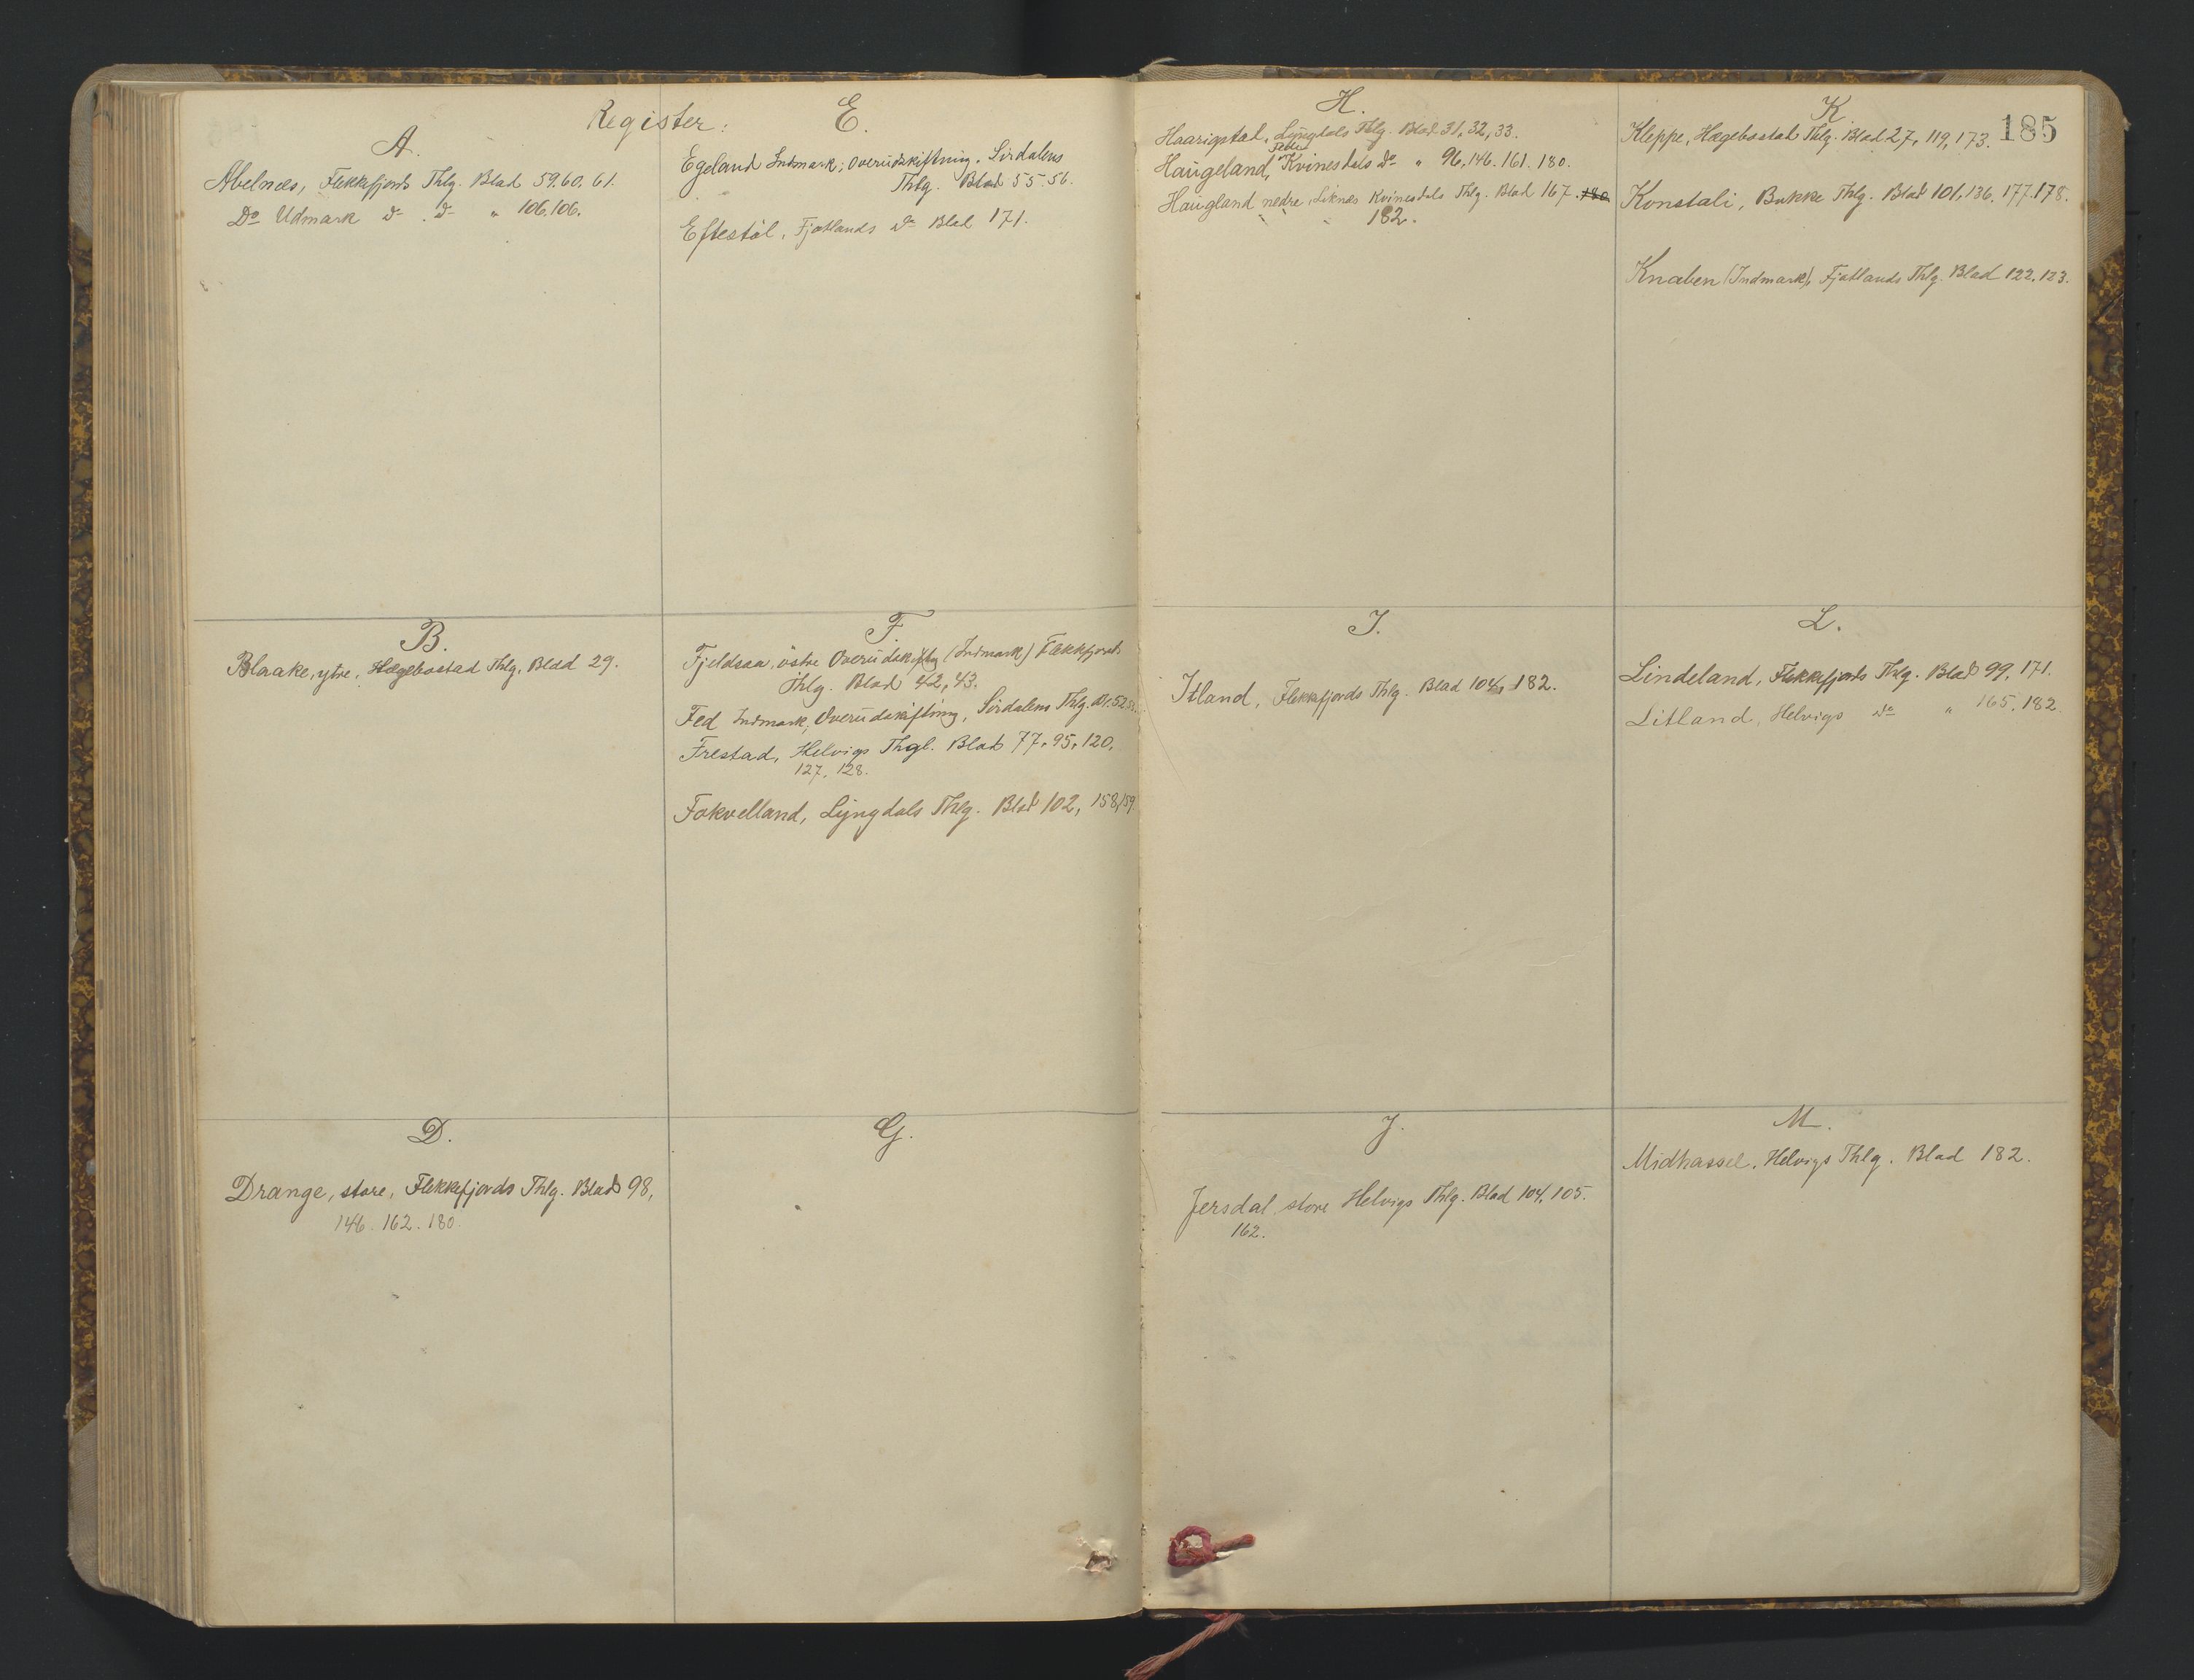 Register:
A.
Abelnæs, Flekkefjords Thlg. Blad 59.60.61.
Do Udmark do do " 106.106.
B.
Blaake, ytre, Hægebostad Thlg. Blad 29.
D.
Drange, store, Flekkefjords Thlg. Blad 98,
146. 162. 180.
E.
Egeland Indmark, Overudskiftning. Sirdalens
Thlg. Blad 55 56.
Eftestøl, Fjotlands do Blad 171.
F.
Fjeldsaa, östre Overudskiftng (Indmark) Flekkefjords
Thlg. Blad 42, 43.
Fed Indmark, Overudskiftning, Sirdalens Thlg. Bl. 52
Frestad, Helvigs Thgl. Blad 77, 95, 120,
127, 128.
Fokvelland, Lyngdals Thlg. Blad 102, 158,159.
G.
H.
Haarigstad, Lyngdals Thlg. Blad 31, 32, 33.
Haugeland, Kvinesdals do " 96.146.161.180.
Haugland nedre, Liknes Kvinesdals Thlg. Blad 167. 180
182.
I.
Itland, Flekkefjords Thlg. Blad 104, 182.
J.
Jersdal store Helvigs Thlg. Blad 104, 105.
162.
K.
185
Kleppe, Hægebostad Thlg. Blad 27, 119, 173.
Konstali, Bakke Thlg. Blad 101, 136, 177.178.
Knaben (Indmark), Fjotlands Thlg. Blad 122.123.
L.
Lindeland, Flekkefjords Thlg. Blad 99, 171.
Litland, Helvigs do " 165, 182
M.
Midhassel, Helvigs Thlg. Blad 182.